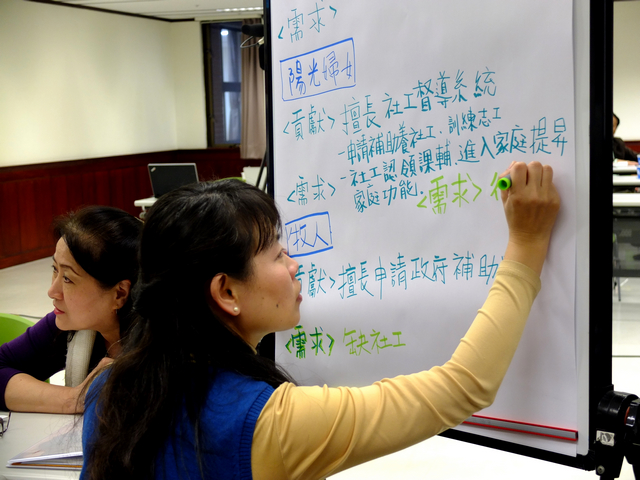 <需求>
陽光婦女
<貢獻> 擅長社工督導系統
－申請補助養社工．訓練志工
<需求> －社工認領課輔，進入家庭提昇
家庭功能． <需求>
牧人
<貢獻> 擅長申請政府補助
<需求> 缺社工